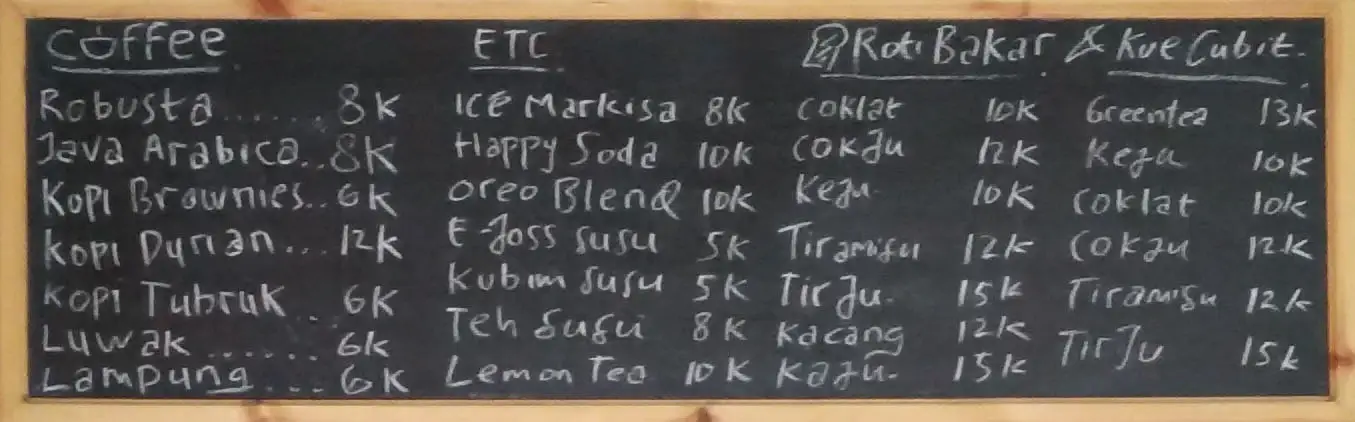 Coffee
Robusta....... 8K
Java Arabica.. 8K
Kopi Brownies.. 6K
Kopi Durian... 12K
Kopi Tubruk.. 6K
Luwak ....... 6K
Lampung... 6K
ETC
ICE Markisa 8K
Happy Soda 10K
Oreo Blend 10K
E-Joss Susu 5K
Kubim Susu 5K
Teh Susu 8K
Lemon Tea 10K
Roti Bakar & Kue Cubit.
Coklat 10K
CokJu 12K
Keju 10K
Tiramisu 12K
TirJu. 15K
Kacang 12K
Kaju. 15K
Greentea 13K
Keju 10K
Coklat 10K
Cokju 12K
Tiramisu 12K
TirJu 15K